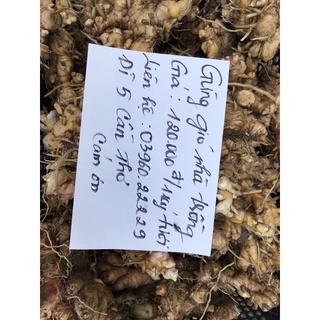 Gừng gió nhà trồng
Giá: 120000 đ/1kg tươi
Liên hệ: 0396022229
Dì 5 Cần Thơ
Cảm ơn